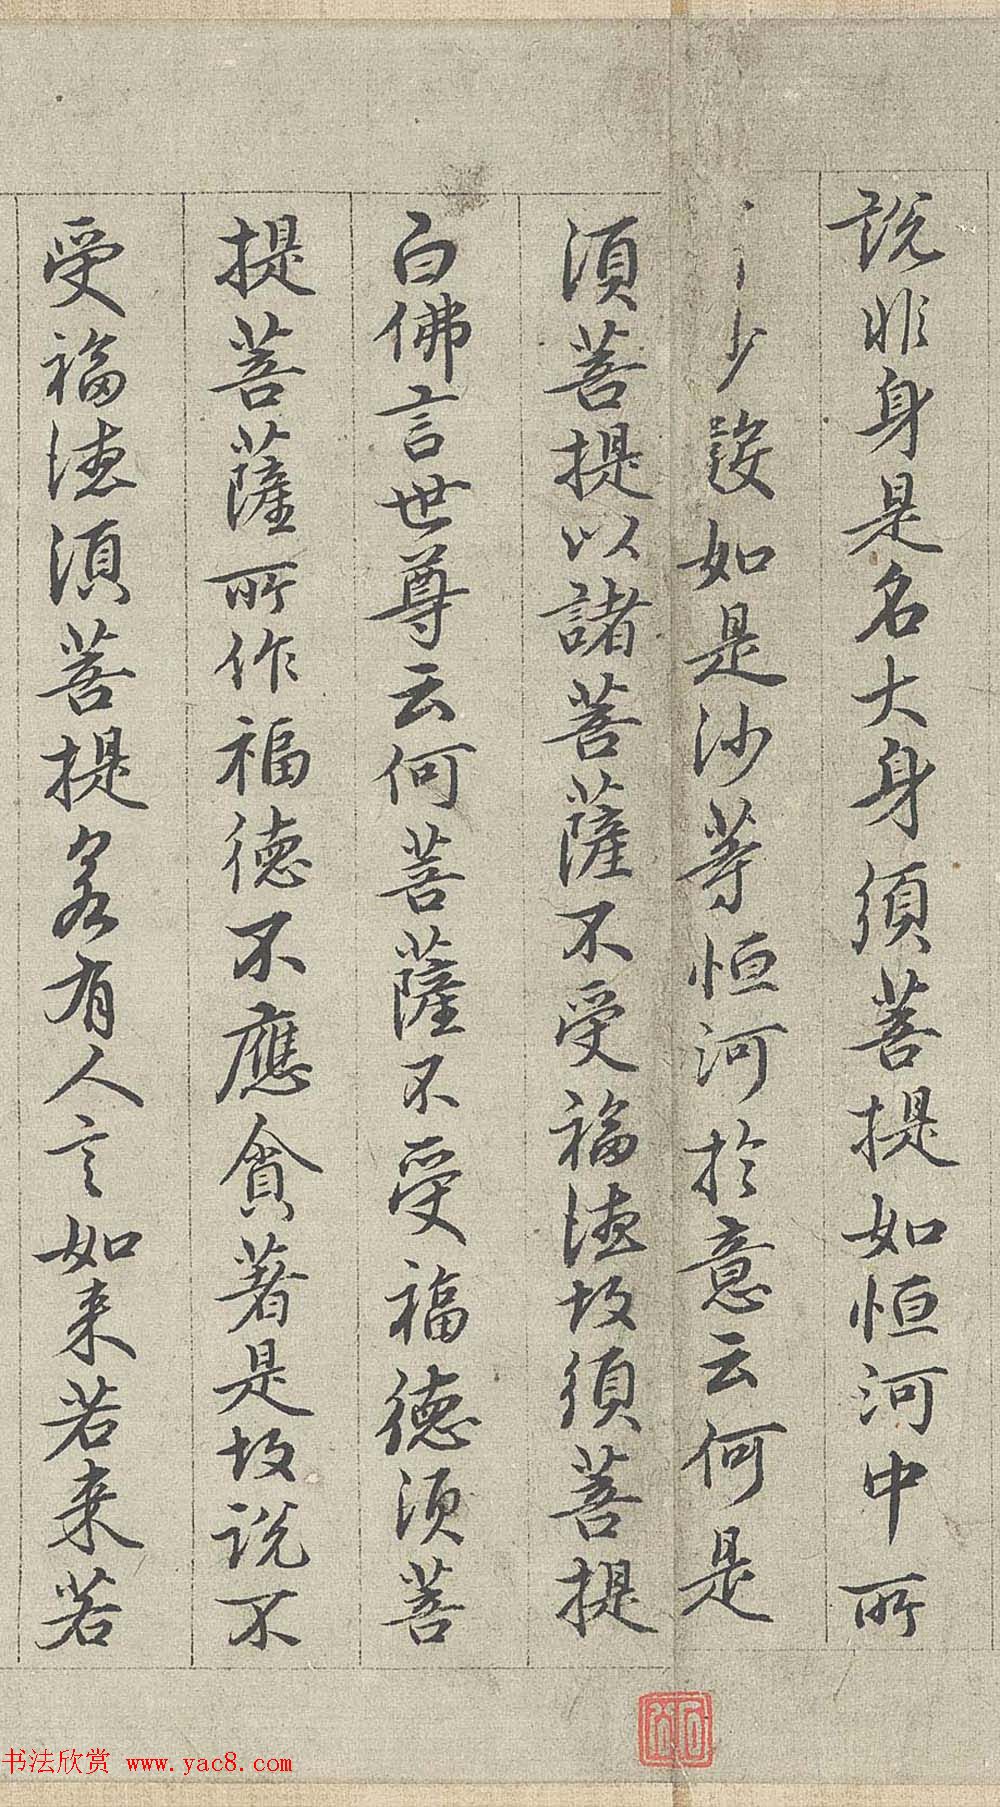 說非身是名大身須菩提如恒河中所
沙數如是沙等恒河於意云何是
須菩提以諸菩薩不受福德故須菩提
白佛言世尊云何菩薩不受福德須菩
提菩薩所作福德不應貪著是故說不
受福德須菩提若有人言如来若来若
书法欣赏 www.yac8.com